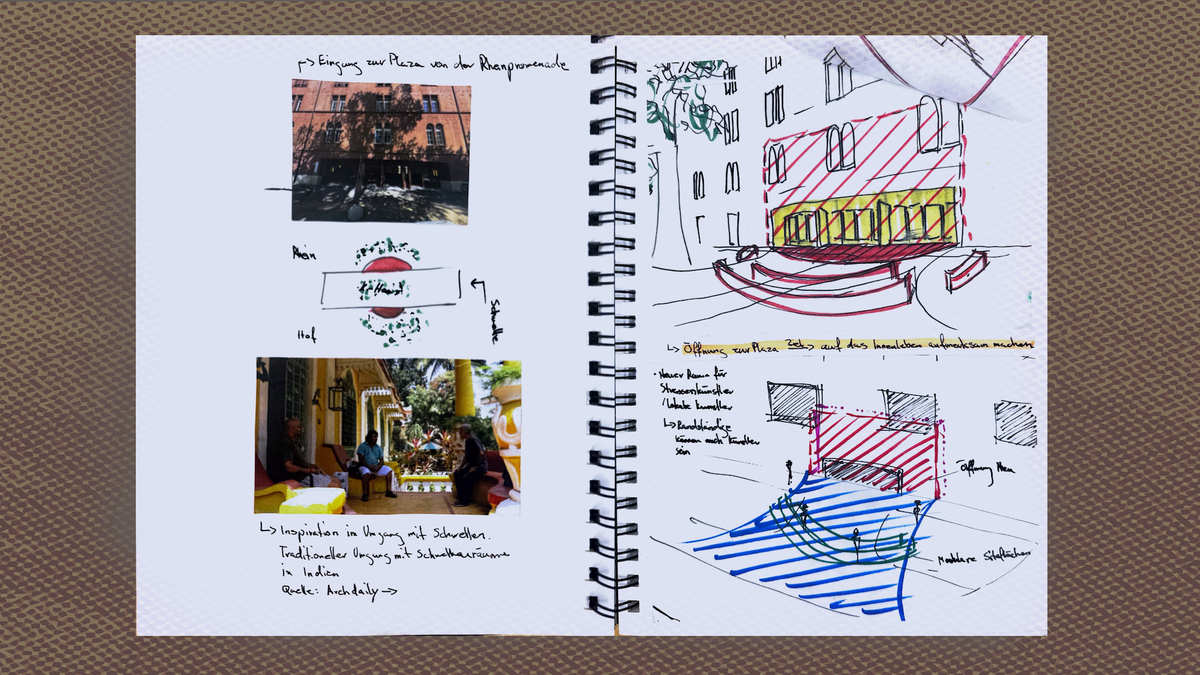 Eingang zur Plaza von der Rheinpromenade
Rhein
Hof
Schwelle
Inspiration im Umgang mit Schwellen.
Traditioneller Umgang mit Schwellenräume
in Indien
Quelle: Archdaily →
Öffnung zur Plaza Ziel → auf das Innenleben aufmerksam machen
• Neuer Raum für
Strassenkünstler
/lokale Künstler
können auch Künstler
sein
Öffnung Neu
Modulare Sitzflächen